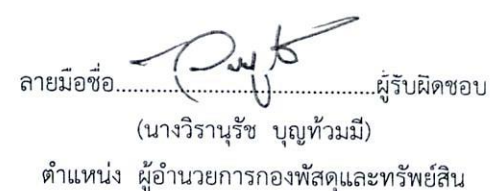 ลายมือชื่อ......................................ผู้รับผิดชอบ
(นางวิรานุรัช บุญท้วมมี)
ตำแหน่ง ผู้อำนวยการกองพัสดุและทรัพย์สิน